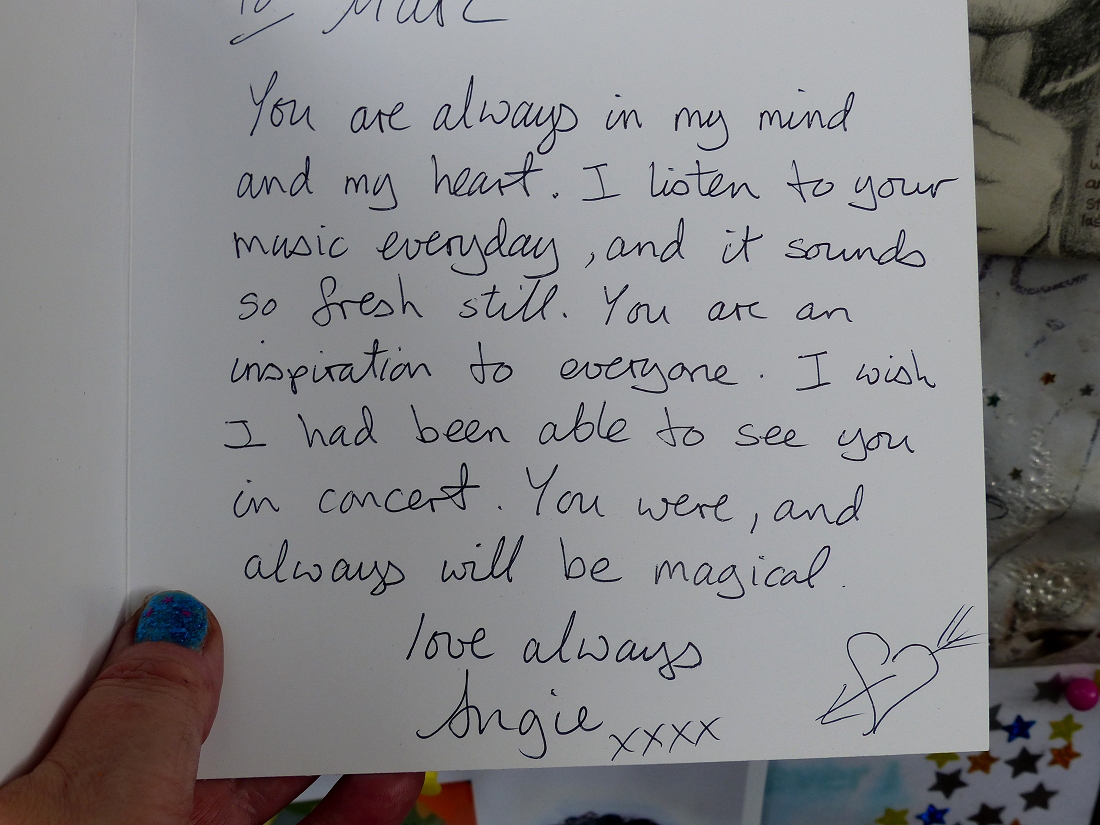 To Marc
You are always in my mind
and my heart. I listen to your
music everyday, and it sounds
so fresh still. You are an
inspiration to everyone. I wish
I had been able to see you
in concert. You were, and
always will be magical.
love always
Angie xxxx